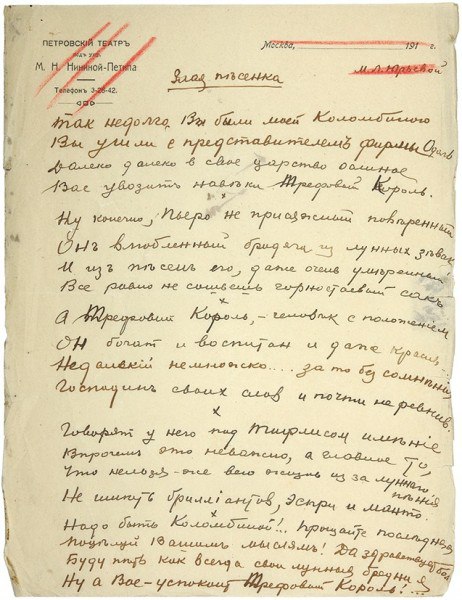 ПЕТРОВСКІЙ ТЕАТРЪ
ПОДЪ УПР.
М. Н. Нининой-Петипа
Телефонъ 3-28-42.
Москва, 191 г.
М. Л. Юрьевой
Злая пѣсенка
Такъ недолго Вы были моей Коломбиною
Вы ушли с представителемъ фирмы Одоль
Далеко далеко в свое царство
Вас увозитъ навѣки Трефовый Король.
Ну конечно, Пьеро не присяжный повѣренный
Онъ влюбленный бродяга из лунныхъ зѣвак
И из пѣсенъ его, даже очень умѣренный
Все равно не сошьешь горностаевый сакъ
х
А Трефовый Король, - человѣк с положеніем
Он богат и воспитан и даже
Недалекій немножко.... за то без сомнѣнія
Господинъ своих слов и почти не ревнив.
х
Говорят у него под Тифлисом имѣніе
Впрочем это неважно, а главное то,
Что нельзя-же всю жизнь из за луннаго пѣнія
Не шить брилліантов, эспри и манто.
х
Надо быть Коломбиной!.. Прощайте последняя
Поцѣлуй Вашим мыслям! Да здравствует боль
Буду пѣть как всегда свои лунныя бредни я
Ну а Вас - успокоит Трефовый Король!...